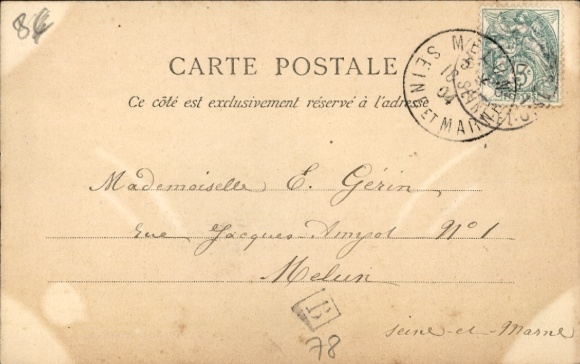 CARTE POSTALE
Ce côté est exclusivement réservé à l'adresse
5
SEINE ET MARNE
18
04
Mademoiselle E. Gérin
rue Jacques-Amyot N° 1
Melun
E
78
Seine-et-Marne